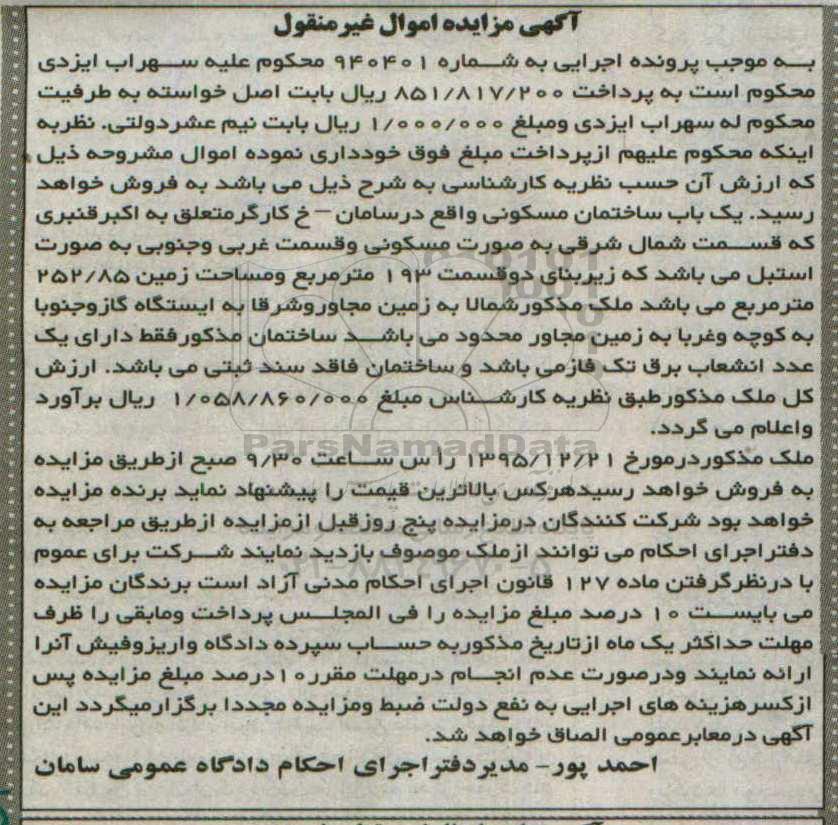 آگهی مزایده اموال غیرمنقول
به موجب پرونده اجرایی به شماره ۹۴۰۴۰۱ محکوم علیه سهراب ایزدی
محکوم است به پرداخت ۸۵۱/۸۱۷/۲۰۰ ریال بابت اصل خواسته به ظرفیت
محکوم له سهراب ایزدی ومبلغ ۱/۰۰۰/۰۰۰ ریال بابت نیم عشردولتی. نظربه
اینکه محکوم علیهم ازپرداخت مبلغ فوق خودداری نموده اموال مشروحه ذیل
که ارزش آن حسب نظریه کارشناسی به شرح ذیل می باشد به فروش خواهد
رسید. یک باب ساختمان مسکونی واقع درسامان – خ کارگرمتعلق به اکبرقنبری
که قسمت شمال شرقی به صورت مسکونی وقسمت غربی وجنوبی به صورت
استبل می باشد که زیربنای دوقسمت ۱۹۳ مترمربع ومساحت زمین ۲۵۲/۸۵
مترمربع می باشد ملک مذکورشمالا به زمین مجاوروشرقا به ایستگاه گازوجنوبا
به کوچه وغربا به زمین مجاور محدود می باشد ساختمان مذکورفقط دارای یک
عدد انشعاب برق تک فازمی باشد و ساختمان فاقد سند ثبتی می باشد. ارزش
کل ملک مذکورطبق نظریه کارشناس مبلغ ۱/۰۵۸/۸۶۰/۰۰۰ ریال برآورد
واعلام می گردد.
ParsNamadData
ملک مذکوردرمورخ ۱۳۹۵/۱۲/۲۱ راس ساعت ۹/۳۰ صبح ازطریق مزایده
به فروش خواهد رسیدهرکس بالاترین قیمت را پیشنهاد نماید برنده مزایده
خواهد بود شرکت کنندگان درمزایده پنج روزقبل ازمزایده ازطریق مراجعه به
دفتراجرای احکام می توانند ازملک موصوف بازدید نمایند شرکت برای عموم
با درنظرگرفتن ماده ۱۲۷ قانون اجرای احکام مدنی آزاد است برندگان مزایده
می بایست ۱۰ درصد مبلغ مزایده را فی المجلس پرداخت ومابقی را ظرف
مهلت حداکثر یک ماه ازتاریخ مذکوربه حساب سپرده دادگاه واریزوفیش آنرا
ارائه نمایند ودرصورت عدم انجام درمهلت مقرر۱۰درصد مبلغ مزایده پس
ازکسرهزینه های اجرایی به نفع دولت ضبط ومزایده مجددا برگزارمیگردد این
آگهی درمعابرعمومی الصاق خواهد شد.
احمد پور- مدیردفتراجرای احکام دادگاه عمومی سامان